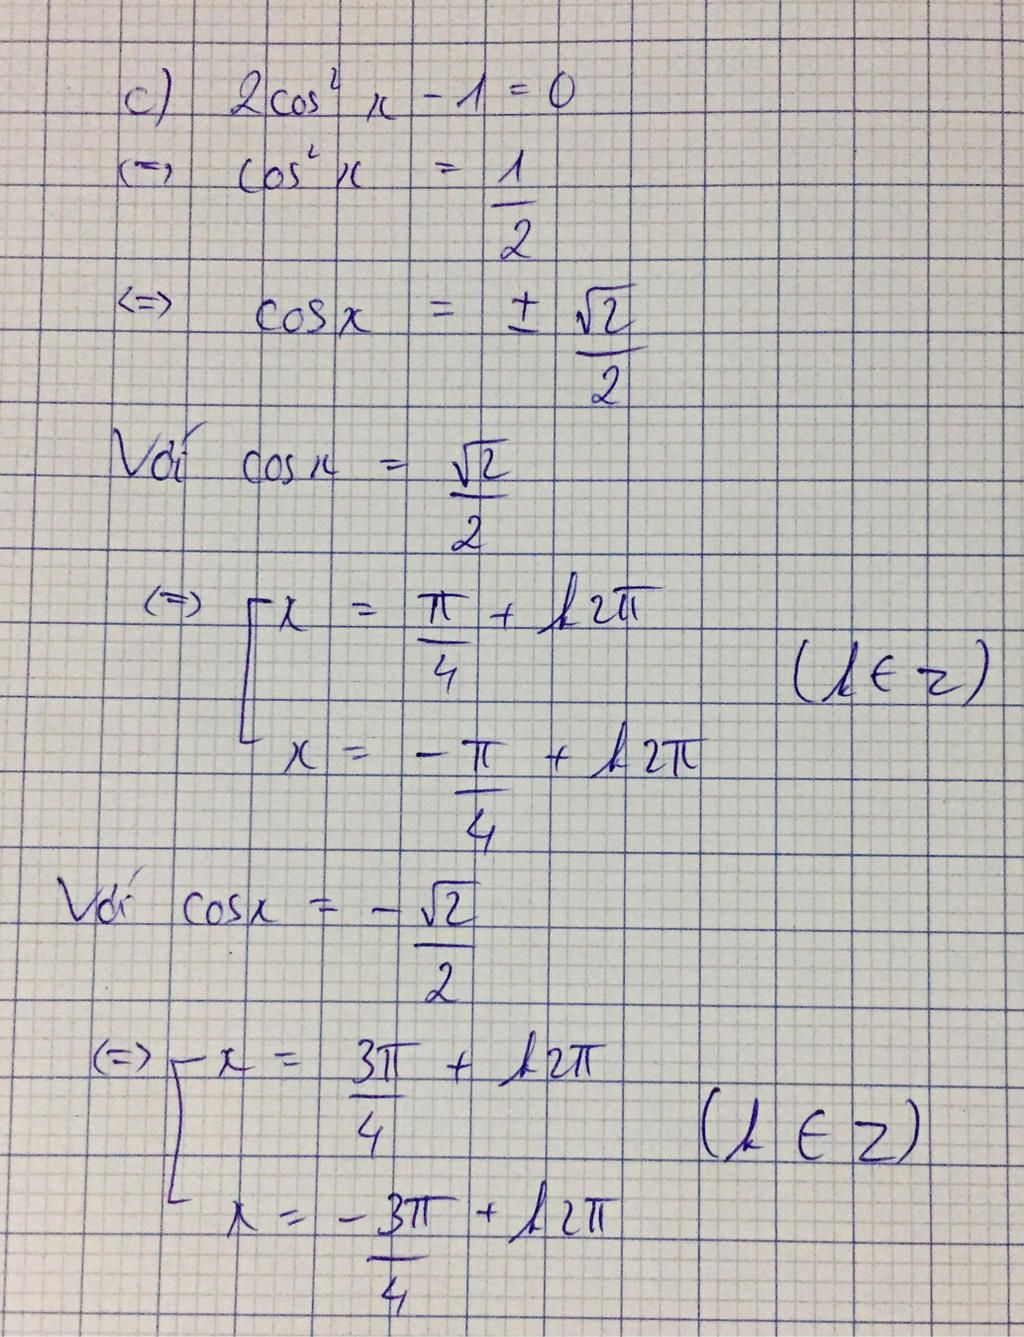 c) 2cos² x - 1 = 0
<=> cos² x = 1/2
<=> cosx = ± √2/2
Với cosx = √2/2
<=> [ x = π/4 + k2π
(k ∈ Z)
x = -π/4 + k2π
Với cosx = -√2/2
<=> [ x = 3π/4 + k2π
(k ∈ Z)
x = -3π/4 + k2π